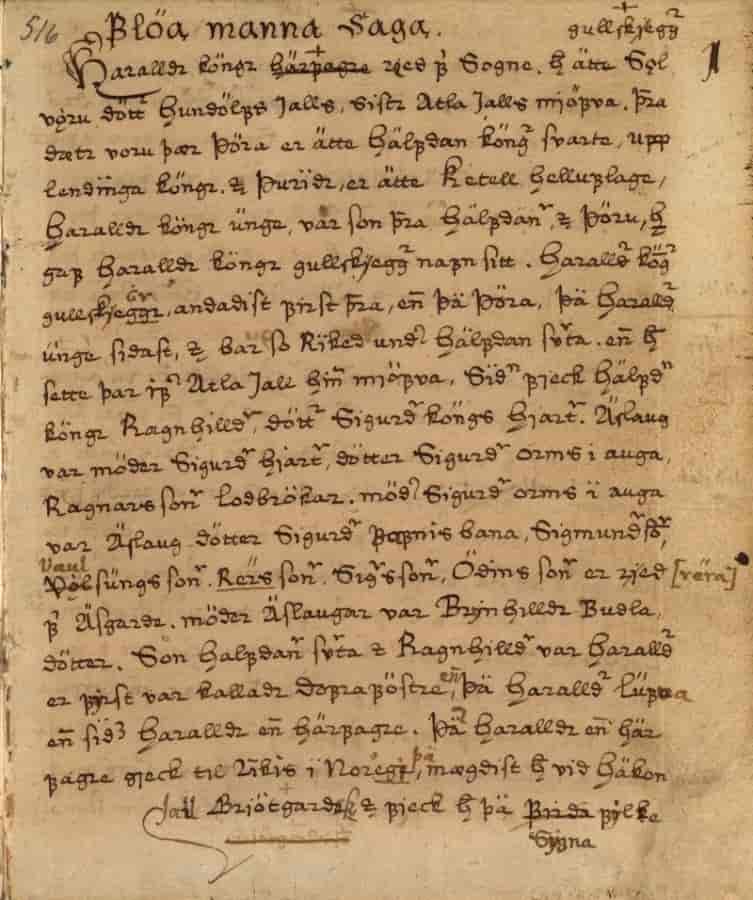 516 Flóa manna Saga. gullskiegg^r 1
Haralldr köngr härfagre ried f^r Sogne. h̄ ätte Söl
vøru dött^r hundölfs Jalls, sistr Atla Jalls miöfva. Þra
dætr voru þær Þöra er ätte hälfdan köng^r svarte, upp
lendïnga köngr. & Þuridr, er ätte Ketell helluflage,
Haralldr köngr ünge, var son þra hälfdan^r, & Þöru, h̄
gaf haralldr köngr gullskiegg^r nafn sitt. haralld^r köng^r
gullskieggr, andadist first þra, en̄ þä Þöra, þä harall^dr
ünge sidast, & bar so Rïked und^r hälfdan sv^rta. en̄ h̄
sette þar if^r Atla Jall hin̄ miöfva, Sid^n fieck hälfd^n
köngr Ragnhilld^r, dött^r Sigurd^r köngs hiart^r. Äslaug
var möder Sigurd^r hiart^r, dötter Sigurd^r orms i auga,
Ragnars son^r lodbrökar. möd^r Sigurd^r orms ï auga
var Äslaug dötter Sigurd^r Fofnis bana, Sigmund^r so^r,
Vaul
Völsüngs son^r. Rers son^r. Sig^rs son^r, Ödins son^r er ried [rëra]
f^r Äsgarde. möder Äslaugar var Brynhilldr Budla,
dötter. Son halfdan^r sv^rta & Ragnhilld^r var haralld^r
er fyrst var kalladr dofraföstre, en̄ þä haralld^r lüfva
en̄ sid^z haralldr en̄ härfagre. Þä^r haralldr en̄ här
fagre gieck til Rïkis i Noregi, þä mægdist h̄ vid häkon
Jall Griötgards & fieck h̄ þä Firda fylke
Sygna